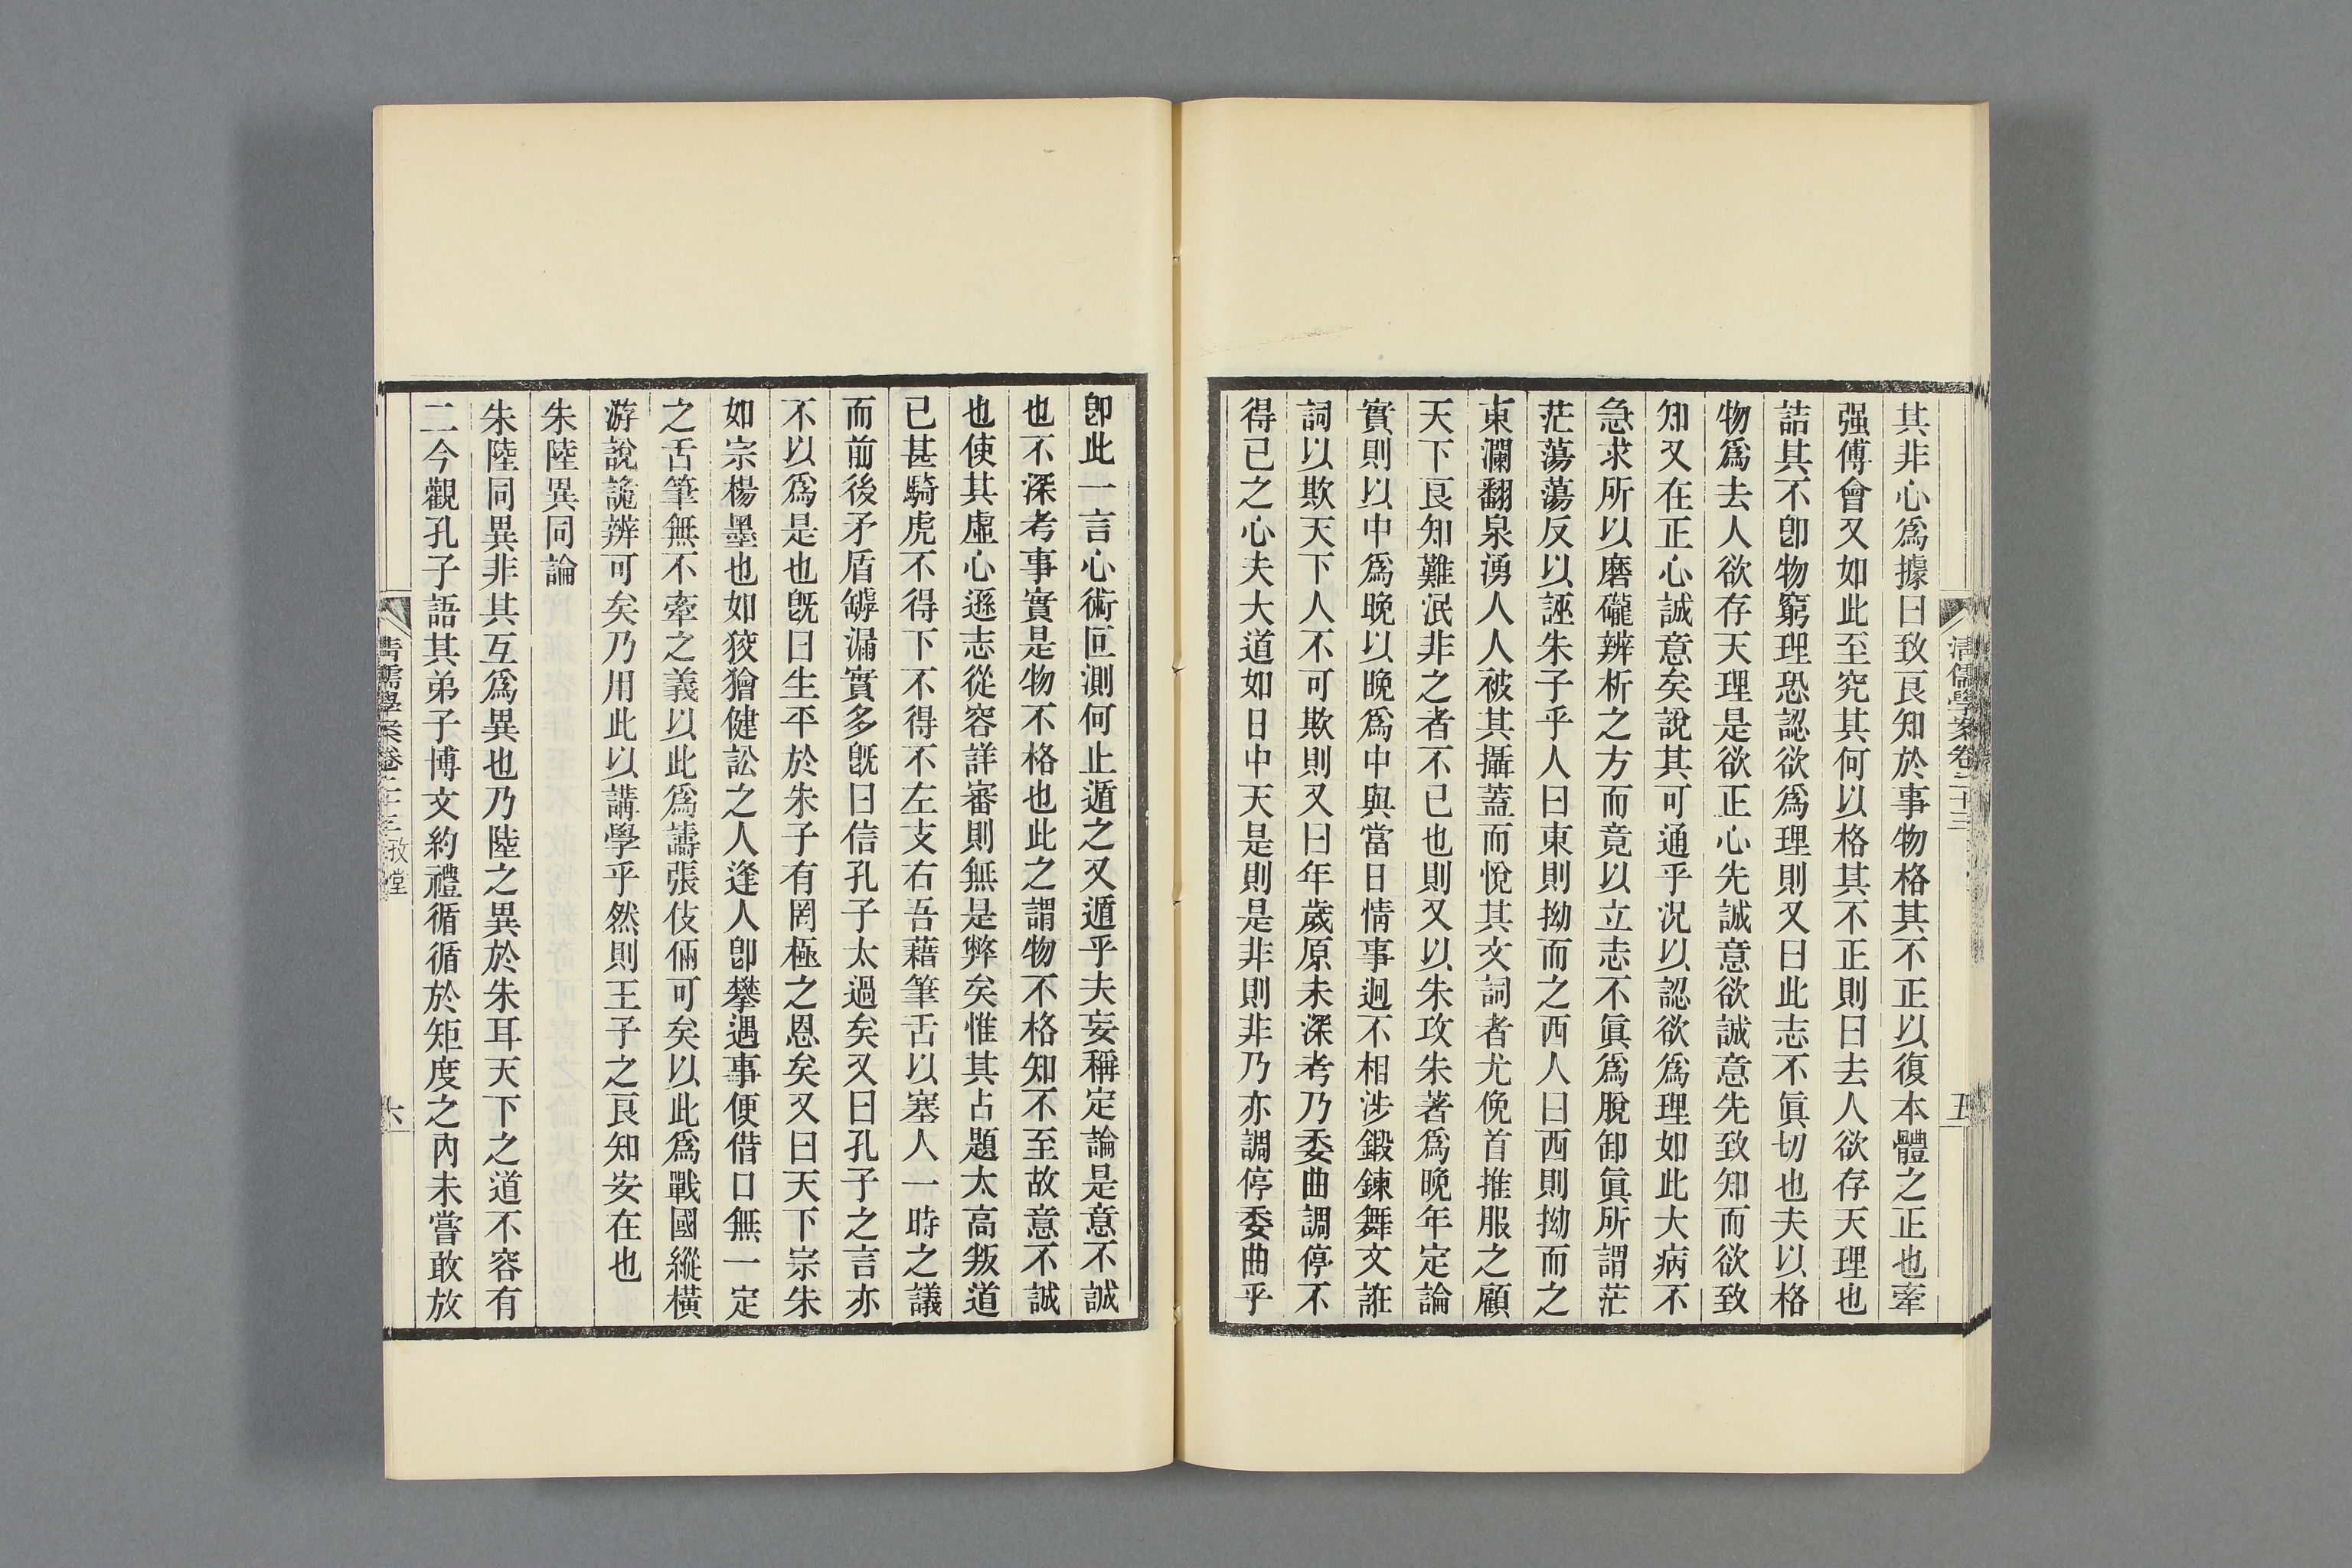 清儒學案卷二十三
五
其非心爲據曰致良知於事物格其不正以復本體之正也牽
强傅會又如此至究其何以格其不正則曰去人欲存天理也
詰其不卽物窮理恐認欲爲理則又曰此志不眞切也夫以格
物爲去人欲存天理是欲正心先誠意欲誠意先致知而欲致
知又在正心誠意矣說其可通乎況以認欲爲理如此大病不
急求所以磨礲辨析之方而竟以立志不眞爲脫卸眞所謂茫
茫蕩蕩反以誣朱子乎人曰東則拗而之西人曰西則拗而之
東瀾翻泉湧人人被其攝蓋而悅其文詞者尤俛首推服之顧
天下良知難泯非之者不已也則又以朱攻朱著爲晚年定論
實則以中爲晚以晚爲中與當日情事迥不相涉鍛鍊舞文誑
詞以欺天下人不可欺則又曰年歲原未深考乃委曲調停不
得已之心夫大道如日中天是則是非則非乃亦調停委曲乎
卽此一言心術叵測何止遁之又遁乎夫妄稱定論是意不誠
也不深考事實是物不格也此之謂物不格知不至故意不誠
也使其虛心遜志從容詳審則無是弊矣惟其占題太高叛道
已甚騎虎不得下不得不左支右吾藉筆舌以塞人一時之議
而前後矛盾罅漏實多旣曰信孔子太過矣又曰孔子之言亦
不以爲是也旣曰生平於朱子有罔極之恩矣又曰天下宗朱
如宗楊墨也如狡獪健訟之人逢人卽攀遇事便借口無一定
之舌筆無不牽之義以此爲譸張伎倆可矣以此爲戰國縱橫
游說詭辨可矣乃用此以講學乎然則王子之良知安在也
朱陸異同論
朱陸同異非其互爲異也乃陸之異於朱耳天下之道不容有
二今觀孔子語其弟子博文約禮循循於矩度之內未嘗敢放
清儒學案卷二十三 孜堂
六